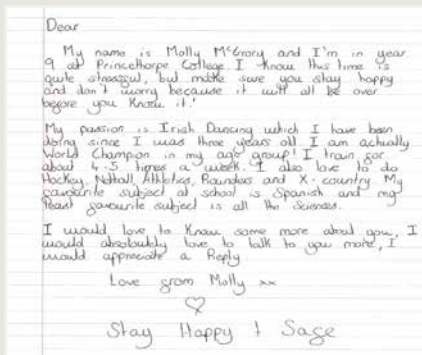 Dear
My name is Molly McGrory and I'm in year
9 at Princethorpe College. I know this time is
quite stressful, but make sure you stay happy
and don't worry because it will all be over
before you know it!
My passion is Irish Dancing which I have been
doing since I was three years old. I am actually
World Champion in my age group! I train for
about 4-5 times a week. I also love to do
Hockey, Netball, Athletics, Rounders and X-country. My
favourite subject at school is Spanish and my
least favourite subject is all the Sciences.
I would love to know some more about you, I
would absoloutely love to talk to you more, I
would appreciate a Reply.
Love from Molly xx
Stay Happy + Safe